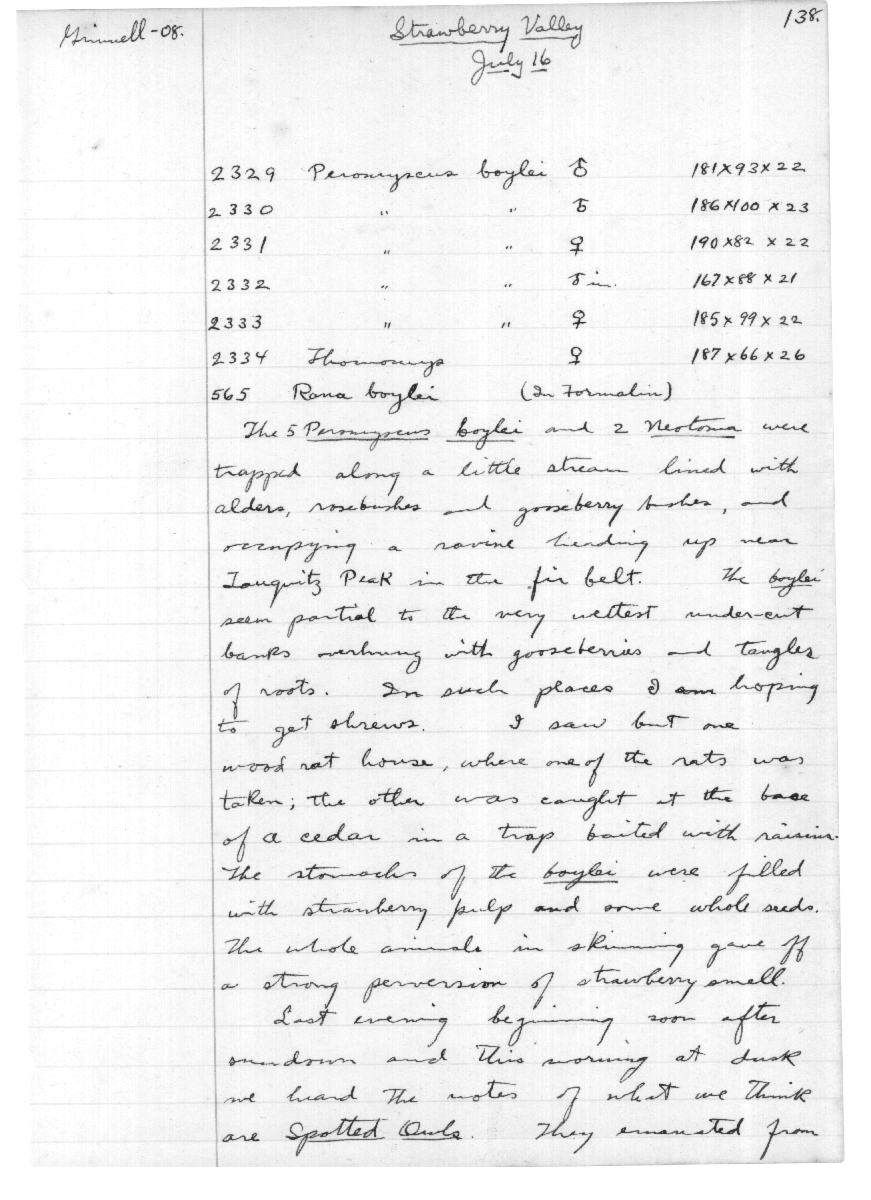 Grinnell-08.
Strawberry Valley
138.
July 16
2329 Peromyscus boylei ♂ 181x93x22
2330 " " ♂ 186x100x23
2331 " " ♀ 190x82x22
2332 " " ♂ im. 167x88x21
2333 " " ♀ 185x99x22
2334 Thomomys ♀ 187x66x26
565 Rana boylei (In Formalin)
The 5 Peromyscus boylei and 2 Neotoma were
trapped along a little stream lined with
alders, rosebushes and gooseberry bushes, and
occupying a ravine heading up near
Tauquitz Peak in the fir belt. The boylei
seem partial to the very wettest under-cut
banks overhung with gooseberries and tangles
of roots. In such places I am hoping
to get shrews. I saw but one
wood rat house, where one of the rats was
taken; the other was caught at the base
of a cedar in a trap baited with raisins.
The stomachs of the boylei were filled
with strawberry pulp and some whole seeds.
The whole animals in skinning gave off
a strong perversion of strawberry smell.
Last evening beginning soon after
sundown and this morning at dusk
we heard the notes of what we think
are Spotted Owls. They emanated from